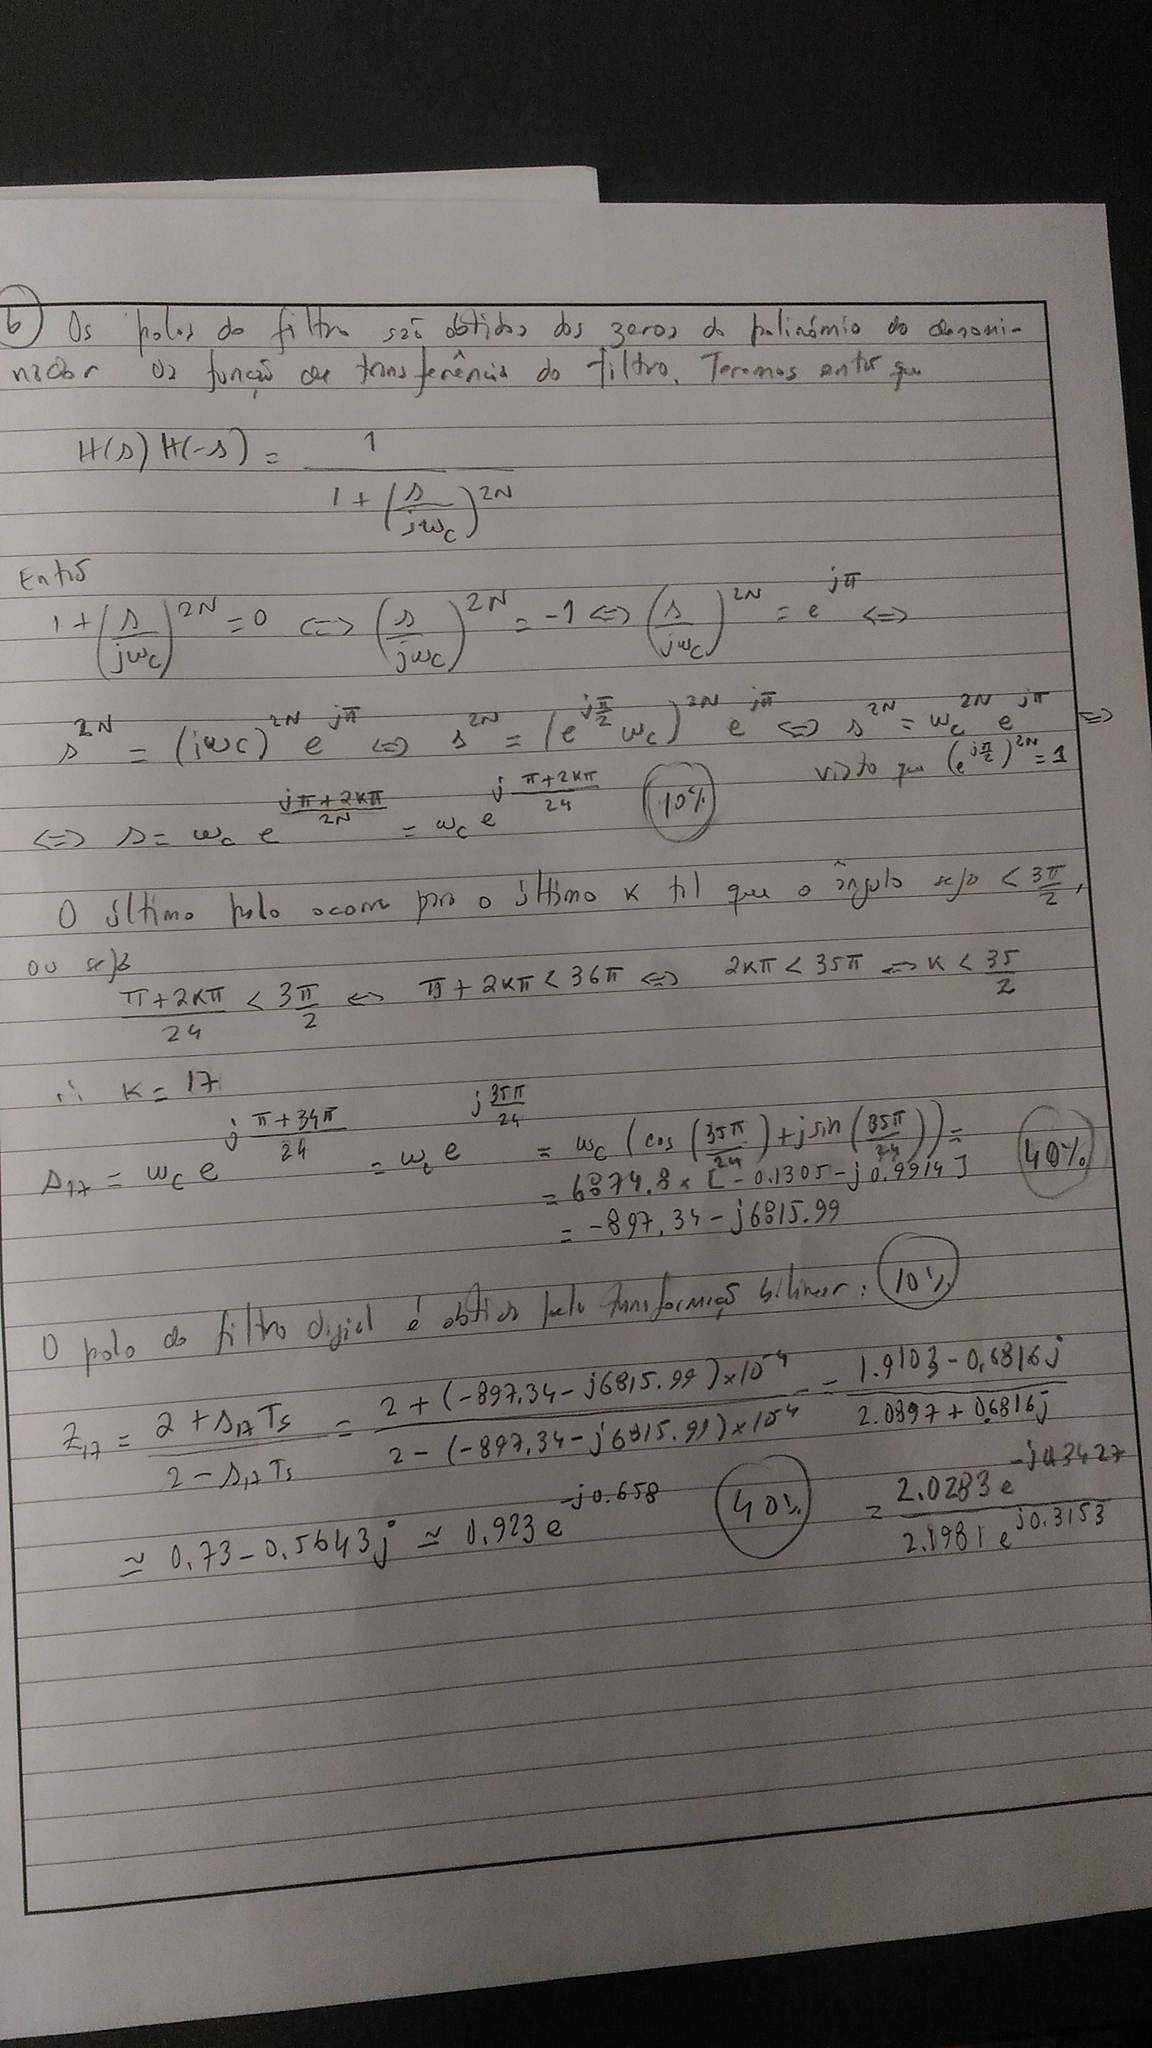 b) Os polos do filtro são obtidos dos zeros do polinómio do denomi-
nador da função de transferência do filtro. Teremos então que
H(s)H(-s) = 1 / (1 + (s/jωc)^2N)
Então
1 + (s/jωc)^2N = 0 <=> (s/jωc)^2N = -1 <=> (s/jωc)^2N = e^jπ <=>
s^2N = (jωc)^2N e^jπ <=> s^2N = (e^jπ/2 ωc)^2N e^jπ <=> s^2N = ωc^2N e^jπ <=>
visto que (e^jπ/2)^2N = 1
<=> s = ωc e^(jπ+2kπ)/2N = ωc e^j(π+2kπ)/24 10%
O último polo ocorre para o último k tal que o ângulo seja < 3π/2,
ou seja
(π+2kπ)/24 < 3π/2 <=> π + 2kπ < 36π <=> 2kπ < 35π <=> k < 35/2
∴ k = 17
s17 = ωc e^j(π+34π)/24 = ωc e^j35π/24 = ωc (cos(35π/24) + j sin(35π/24)) =
= 6874.8 × [-0.1305 - j0.9914] 40%
= -897.34 - j6815.99
O polo do filtro digital é obtido pela transformação bilinear: 10%
Z17 = (2 + s17 Ts)/(2 - s17 Ts) = (2 + (-897.34 - j6815.99)×10^-4)/(2 - (-897.34 - j6815.99)×10^-4) = (1.9103 - 0.6816j)/(2.0897 + 0.6816j)
= 2.0283 e^-j0.3427 / 2.1981 e^j0.3153
≃ 0.73 - 0.5643j ≃ 0.923 e^-j0.658 40%